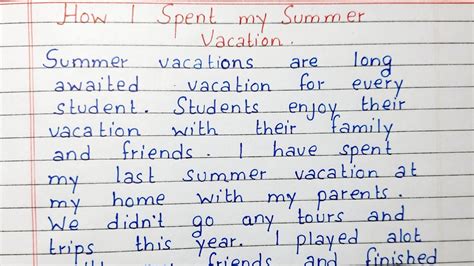 How I Spent my Summer
Vacation.
Summer vacations are long
awaited vacation for every
student. Students enjoy their
vacation with their family
and friends. I have spent
my last summer vacation at
my home with my parents.
We didn't go any tours and
trips this year. I played alot
friends and finished